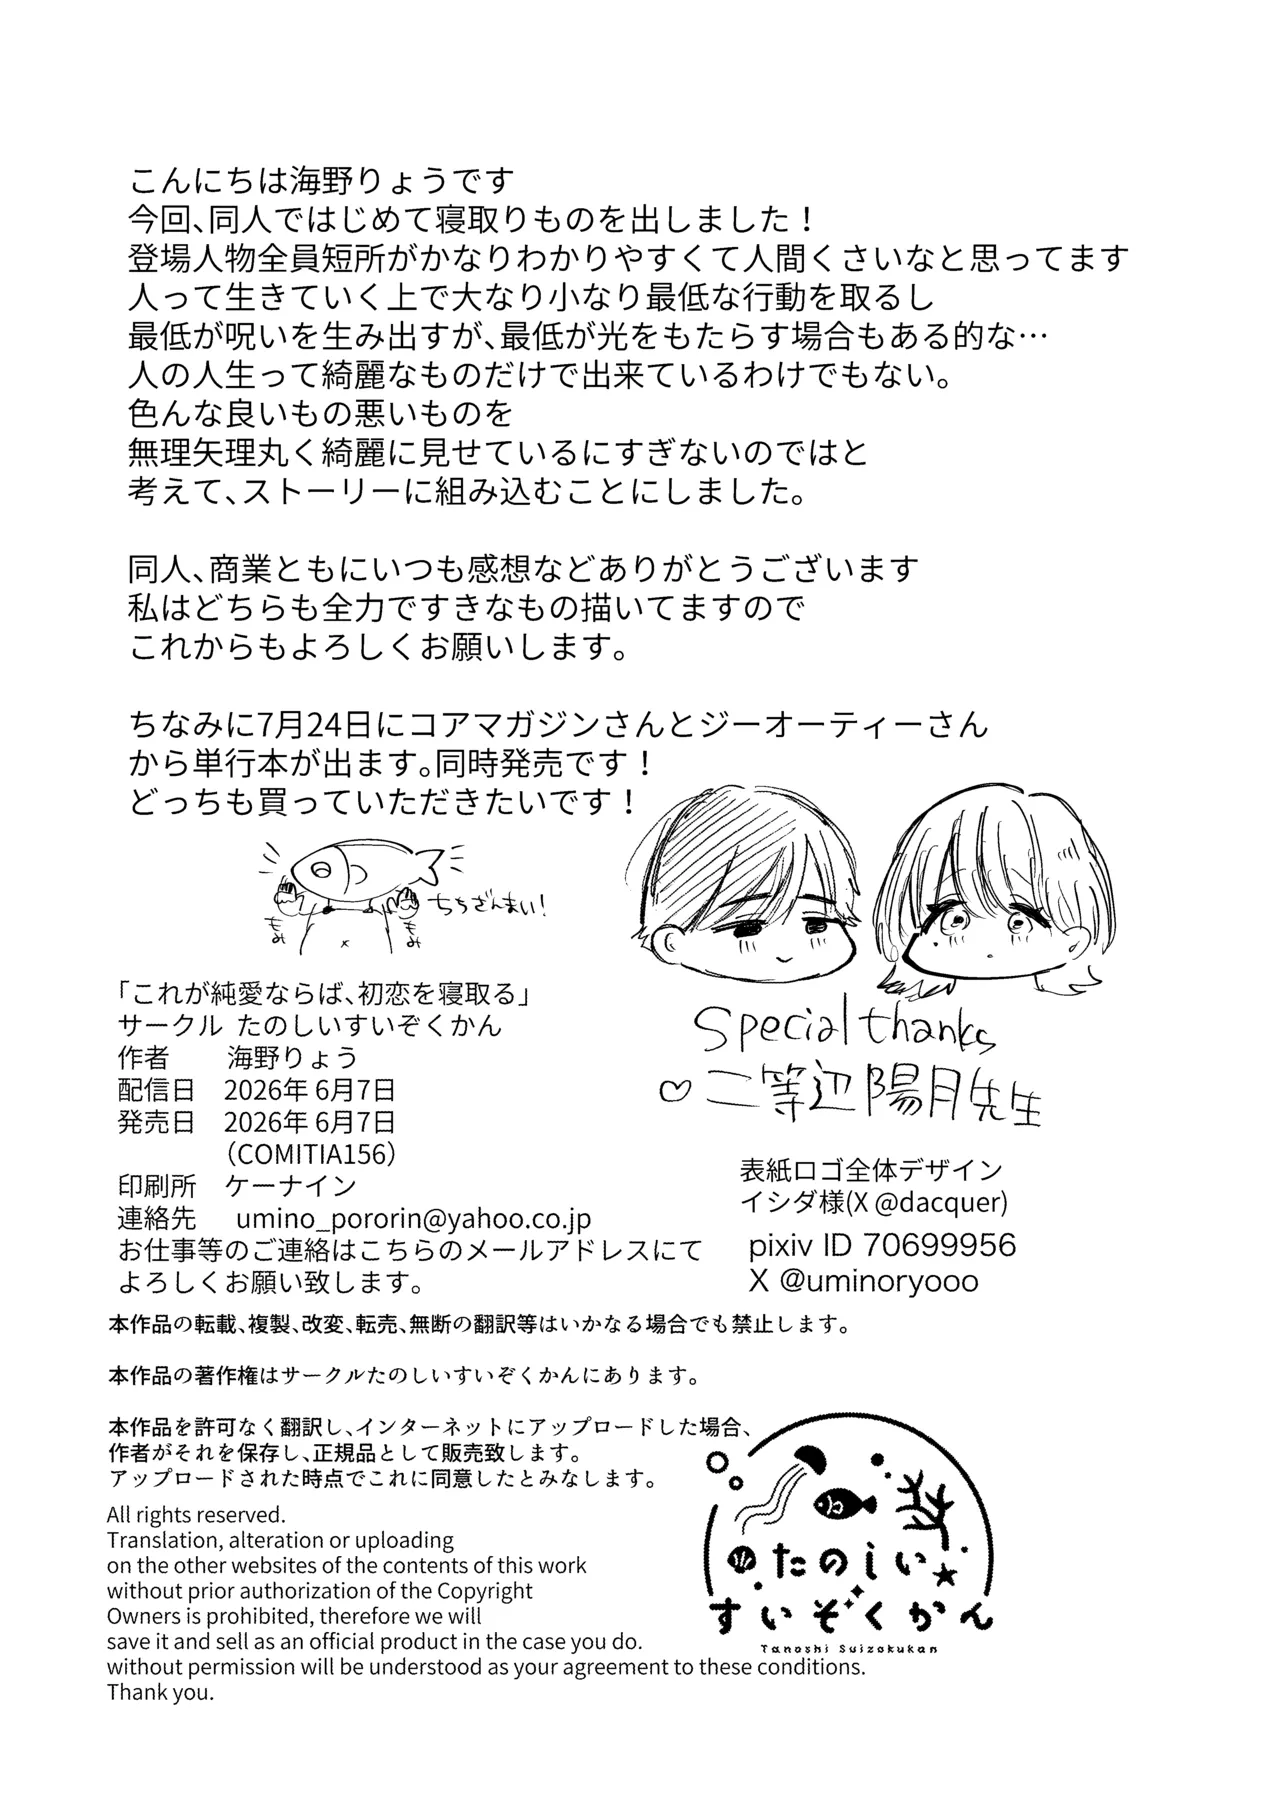 こんにちは海野りょうです
今回、同人ではじめて寝取りものを出しました！
登場人物全員短所がかなりわかりやすくて人間くさいなと思ってます
人って生きていく上で大なり小なり最低な行動を取るし
最低が呪いを生み出すが、最低が光をもたらす場合もある的な…
人の人生って綺麗なものだけで出来ているわけでもない。
色んな良いもの悪いものを
無理矢理丸く綺麗に見せているにすぎないのではと
考えて、ストーリーに組み込むことにしました。
同人、商業ともにいつも感想などありがとうございます
私はどちらも全力ですきなもの描いてますので
これからもよろしくお願いします。
ちなみに7月24日にコアマガジンさんとジーオーティーさん
から単行本が出ます。同時発売です！
どっちも買っていただきたいです！
ちちざんまい！
もみ
もみ
「これが純愛ならば、初恋を寝取る」
サークル たのしいすいぞくかん
作者 海野りょう
配信日 2026年 6月7日
発売日 2026年 6月7日
（COMITIA156）
印刷所 ケーナイン
連絡先 umino_pororin@yahoo.co.jp
お仕事等のご連絡はこちらのメールアドレスにて
よろしくお願い致します。
Special thanks
♡二等辺陽月先生
表紙ロゴ全体デザイン
イシダ様(X @dacquer)
pixiv ID 70699956
X @uminoryooo
本作品の転載、複製、改変、転売、無断の翻訳等はいかなる場合でも禁止します。
本作品の著作権はサークルたのしいすいぞくかんにあります。
本作品を許可なく翻訳し、インターネットにアップロードした場合、
作者がそれを保存し、正規品として販売致します。
アップロードされた時点でこれに同意したとみなします。
All rights reserved.
Translation, alteration or uploading
on the other websites of the contents of this work
without prior authorization of the Copyright
Owners is prohibited, therefore we will
save it and sell as an official product in the case you do.
without permission will be understood as your agreement to these conditions.
Thank you.
たのしい
すいぞくかん
Tanoshi Suizokukan